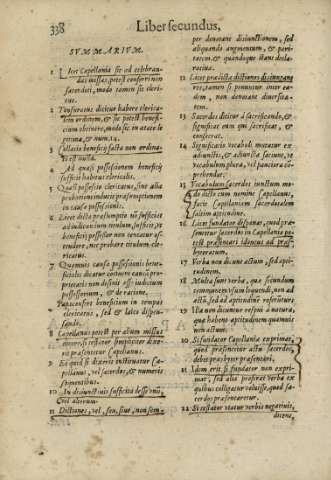 338
Liber secundus,
SVMMARIVM.
1 Licet Capellania sit ad celebran-
das missas, potest conferri non
sacerdoti, modo tamen sit cleri-
cus.
2 Tonsuratus dicitur habere clerica-
lem ordinem, & sic potest benefi-
cium obtinere, modo sit in ætate le
gitima, & num. 14.
3 Collatio beneficij facta non ordina-
to est nulla.
4 Ad quasi possessionem beneficij
sufficit habitus clericalis.
5 Quasi possessio clericatus, sine alia
probatione inducit præsumptionem
in causa possessionis.
6 Licet dicta præsumptio
ad indicationem
beneficij possessor non teneatur
tendere, nec probare titulum cle-
ricatus.
7 Quamuis causa possessionis benefi-
cialis dicatur
possessorium, & de ratione.
Papa confert beneficium in tempus
clericatus, sed & lata dispen-
sando.
8 Capellanus potest per alium missas
dicere, si testator simpliciter dixe-
rit præsentetur Capellanus.
9 Et quid si dixerit instituatur Ca-
pellanus, vel sacerdos, & numeris
sequentibus.
10 In disiunctiuis sufficit
alterum.
11 Dictiones, vel, seu, siue, non sem-
per denotant disiunctionem, sed
aliquando augmentum, & pari-
tatem, & quandoque stant decla-
ratiue.
12 Licet prædictæ dictiones disiungant
res, tamen si ponuntur inter ea-
dem, non denotant diuersita-
tem.
13 Sacerdos dicitur à sacrificando, &
significat eum qui sacrificat, &
consecrat.
14 Significatio vocabuli
adiunctis, & adiuncta faciunt, vt
vocabulum plura, vel pauciora co-
prehendat.
15 Vocabulum sacerdos iunctum mo-
do dicto cum nomine Capellanus,
facit Capellaniam sacerdotalem
saltim aptitudine.
16 Licet fundator disponat, quod præ-
sentetur sacerdos in Capellania po-
test præsentari idoneus ad præs-
byteratum.
17 Verba non dicunt actum, sed apti-
tudinem.
18 Multa sunt verba, quæ secundum
communem vsum loquendi, non ad
actū, sed ad aptitudinē referūtur.
19 Ita non dicuntur vestes à natura,
quæ habent aptitudinem quamuis
non actum.
20 Si fundator Capellaniæ exprimat,
quod præsentetur actu sacerdos,
debet presbyter præsentari.
21 Idem erit si fundator non expri-
mat, sed alia proferat verba ex
quibus colligatur voluisse, quod sa-
cerdos præsentaretur.
22 Si testator vtatur verbis negatiuis,
dicens,